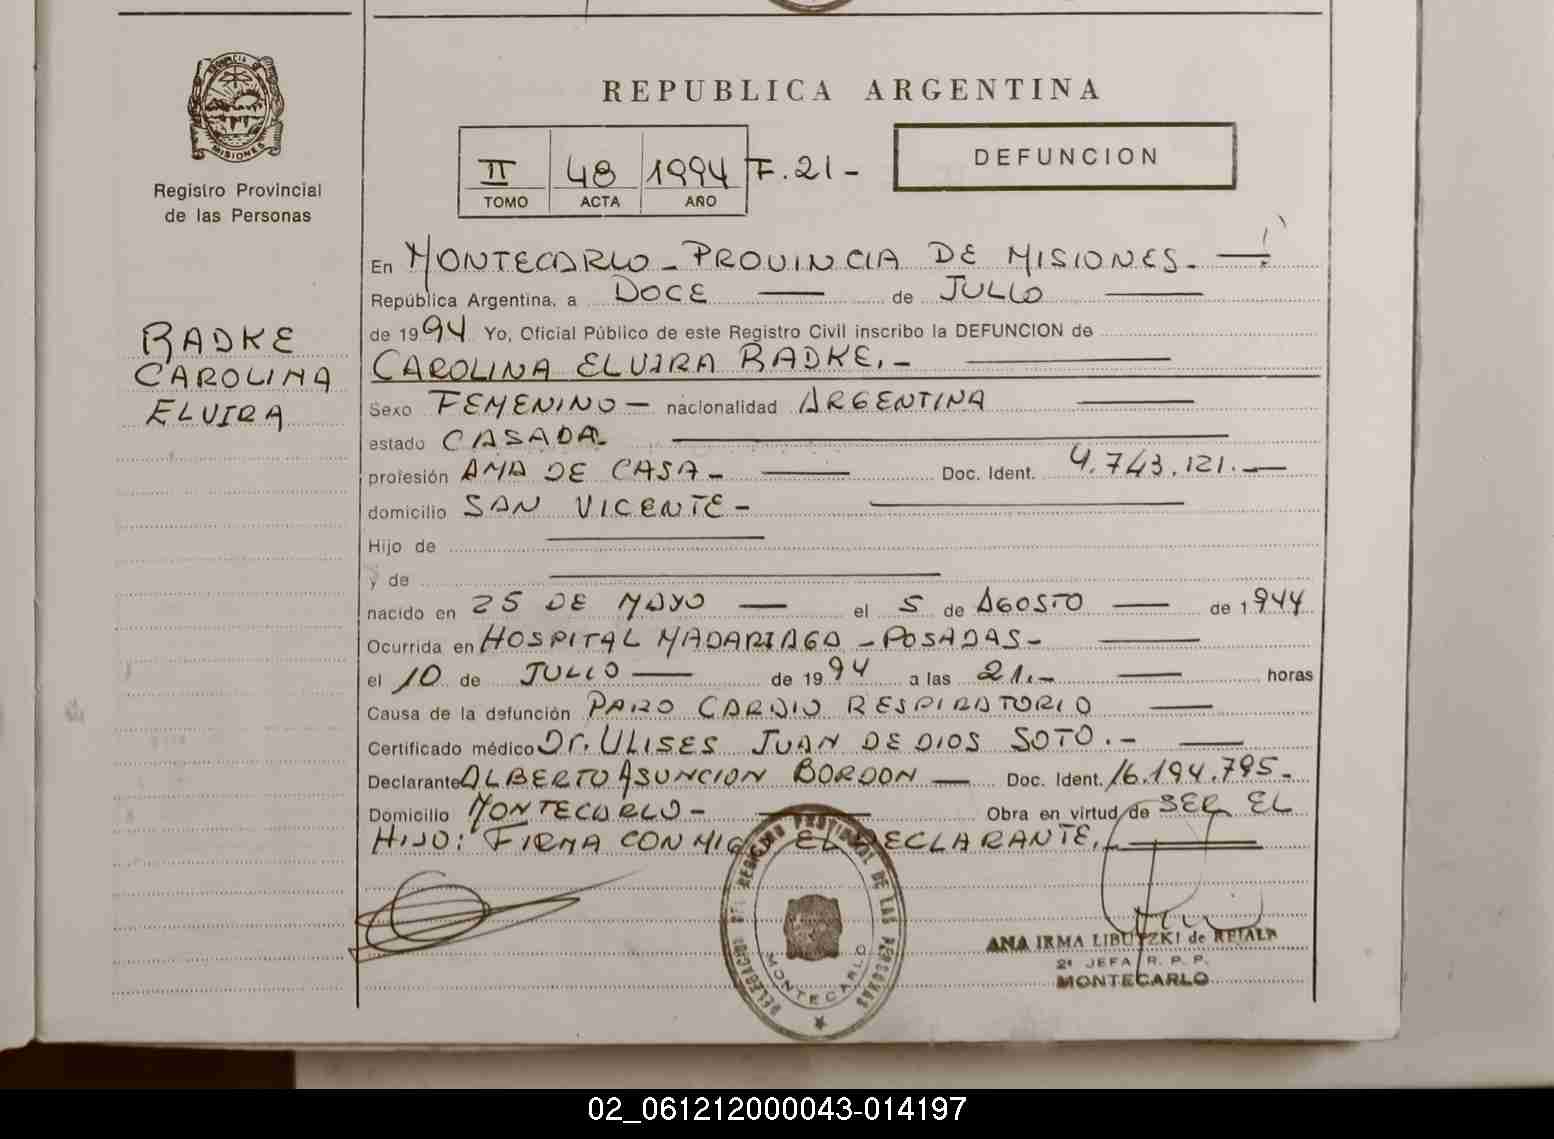 PROVINCIA DE MISIONES
Registro Provincial
de las Personas
RADKE
CAROLINA
ELVIRA
REPUBLICA ARGENTINA
II 48 1994 F. 21 -
TOMO ACTA AÑO
DEFUNCION
En MONTECARLO - PROVINCIA DE MISIONES.
República Argentina, a DOCE de JULIO
de 1994 Yo, Oficial Público de este Registro Civil inscribo la DEFUNCION de
CAROLINA ELVIRA RADKE. -
Sexo FEMENINO - nacionalidad ARGENTINA
estado CASADA.
profesión AMA DE CASA - Doc. Ident. 4.743.121. -
domicilio SAN VICENTE -
Hijo de
y de
nacido en 25 DE MAYO el 5 de AGOSTO de 1944
Ocurrida en HOSPITAL MADARIAGA - POSADAS -
el 10 de JULIO de 1994 a las 21. - horas
Causa de la defunción PARO CARDIO RESPIRATORIO
Certificado médico Dr. ULISES JUAN DE DIOS SOTO. -
Declarante ALBERTO ASUNCION BORDON Doc. Ident. 16.194.795. -
Domicilio MONTECARLO - Obra en virtud de SER EL
HIJO: FIRMA CONMIGO EL DECLARANTE.
DELEGACION DEL REGISTRO PROVINCIAL DE LAS PERSONAS
MONTECARLO
ANA IRMA LIBUTZKI de
2ª JEFA R. P. P.
MONTECARLO
02_061212000043-014197